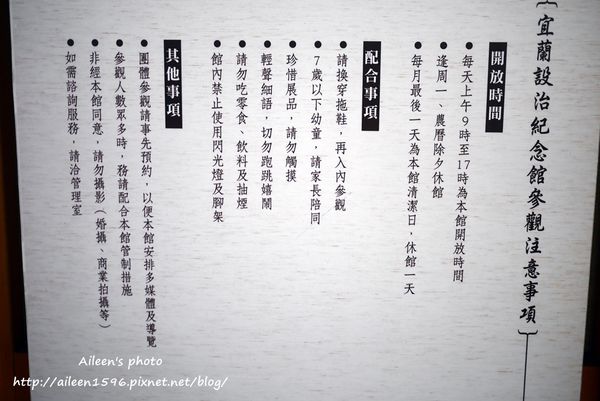 宜蘭設治紀念館參觀注意事項
開放時間
● 每天上午9時至17時為本館開放時間
● 逢周一、農曆除夕休館
● 每月最後一天為本館清潔日，休館一天
配合事項
● 請換穿拖鞋，再入內參觀
● 7歲以下幼童，請家長陪同
● 珍惜展品，請勿觸摸
● 輕聲細語，切勿跑跳嬉鬧
● 請勿吃零食、飲料及抽煙
● 館內禁止使用閃光燈及腳架
其他事項
● 團體參觀請事先預約，以便本館安排多媒體及導覽
● 參觀人數眾多時，務請配合本館管制措施
● 非經本館同意，請勿攝影（婚攝、商業拍攝等）
● 如需諮詢服務，請洽管理室
Aileen's photo
http://aileen1596.pixnet.net/blog/